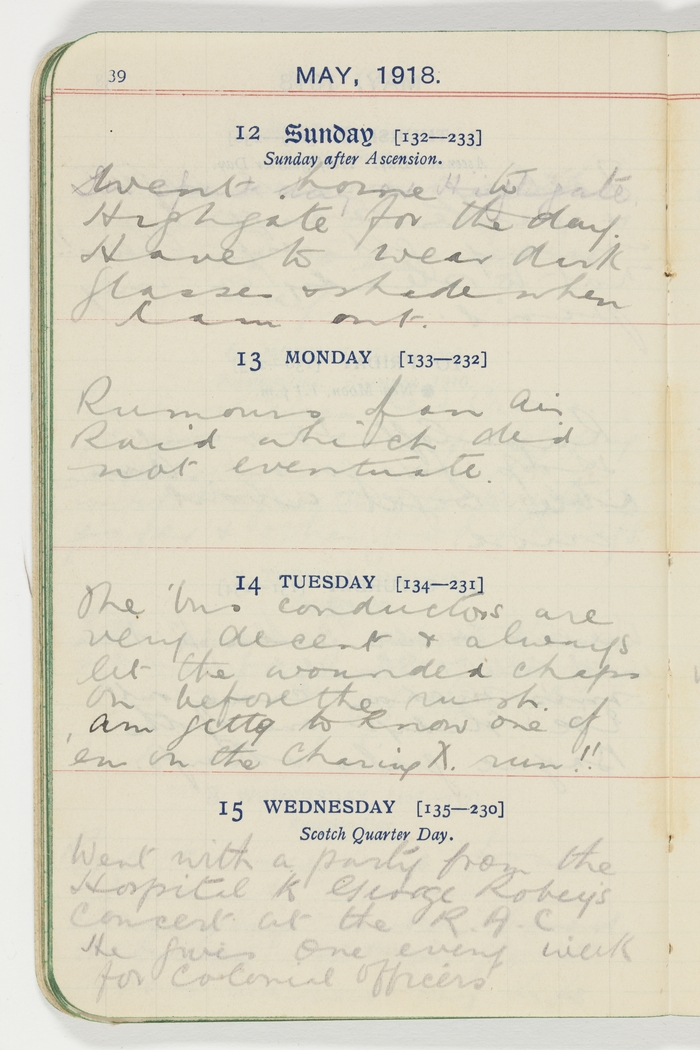 39
MAY, 1918.
12 Sunday [132—233]
Sunday after Ascension.
Went home to
Highgate for the day.
Have to wear dark
glasses & shade when
I am out.
13 MONDAY [133—232]
Rumours of an Air
Raid which did
not eventuate.
14 TUESDAY [134—231]
The 'bus conductors are
very decent & always
let the wounded chaps
on before the rush.
am gettg to know one of
em on the Charing X. run!!
15 WEDNESDAY [135—230]
Scotch Quarter Day.
Went with a party from the
Hospital to George Robey's
Concert at the R.A.C
He gives one every week
for Colonial Officers